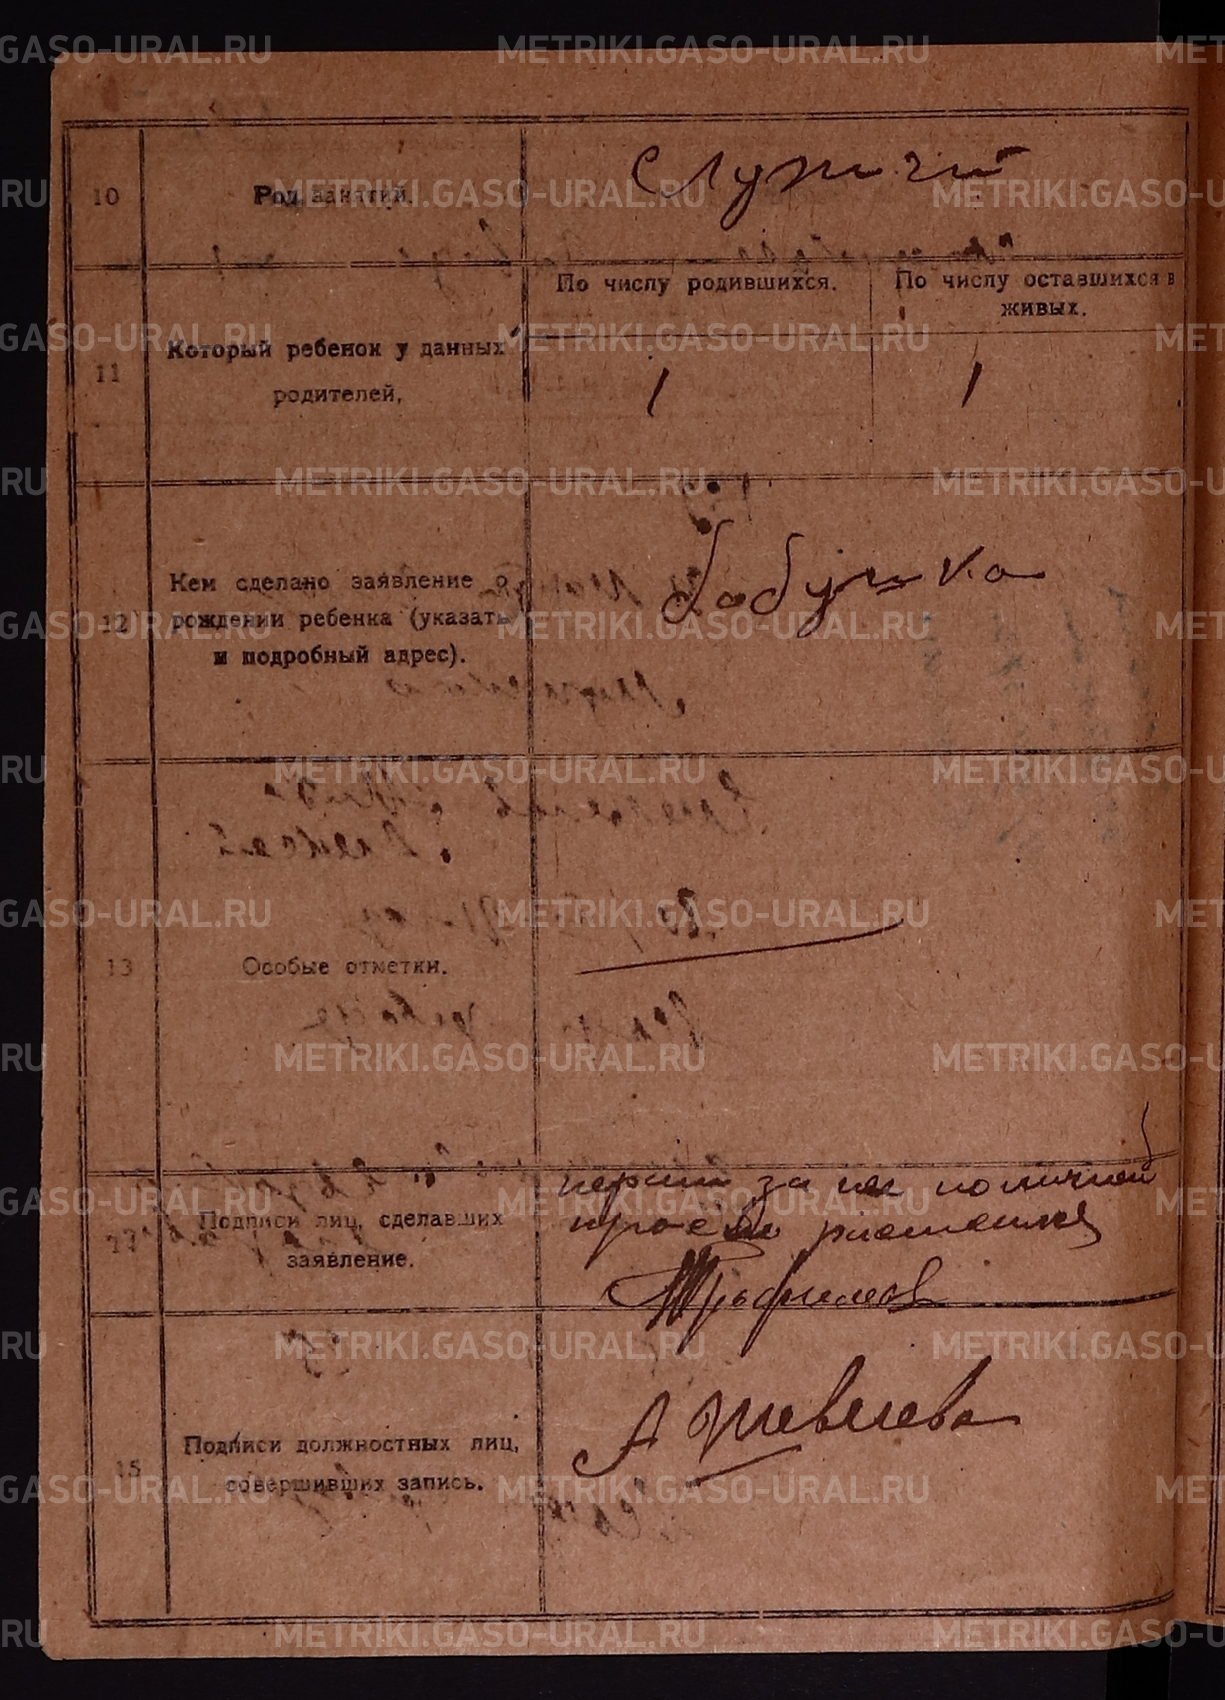 10
Род занятий.
Служит
11
Который ребенок у данных
родителей.
По числу родившихся.
По числу оставшихся в
живых.
1
1
12
Кем сделано заявление о
рождении ребенка (указать
и подробный адрес).
бабушка
13
Особые отметки.
Подписи лиц, сделавших
заявление.
за
по личной
росписка
Трофимов
15
Подписи должностных лиц,
совершивших запись.
METRIKI.GASO-URAL.RU